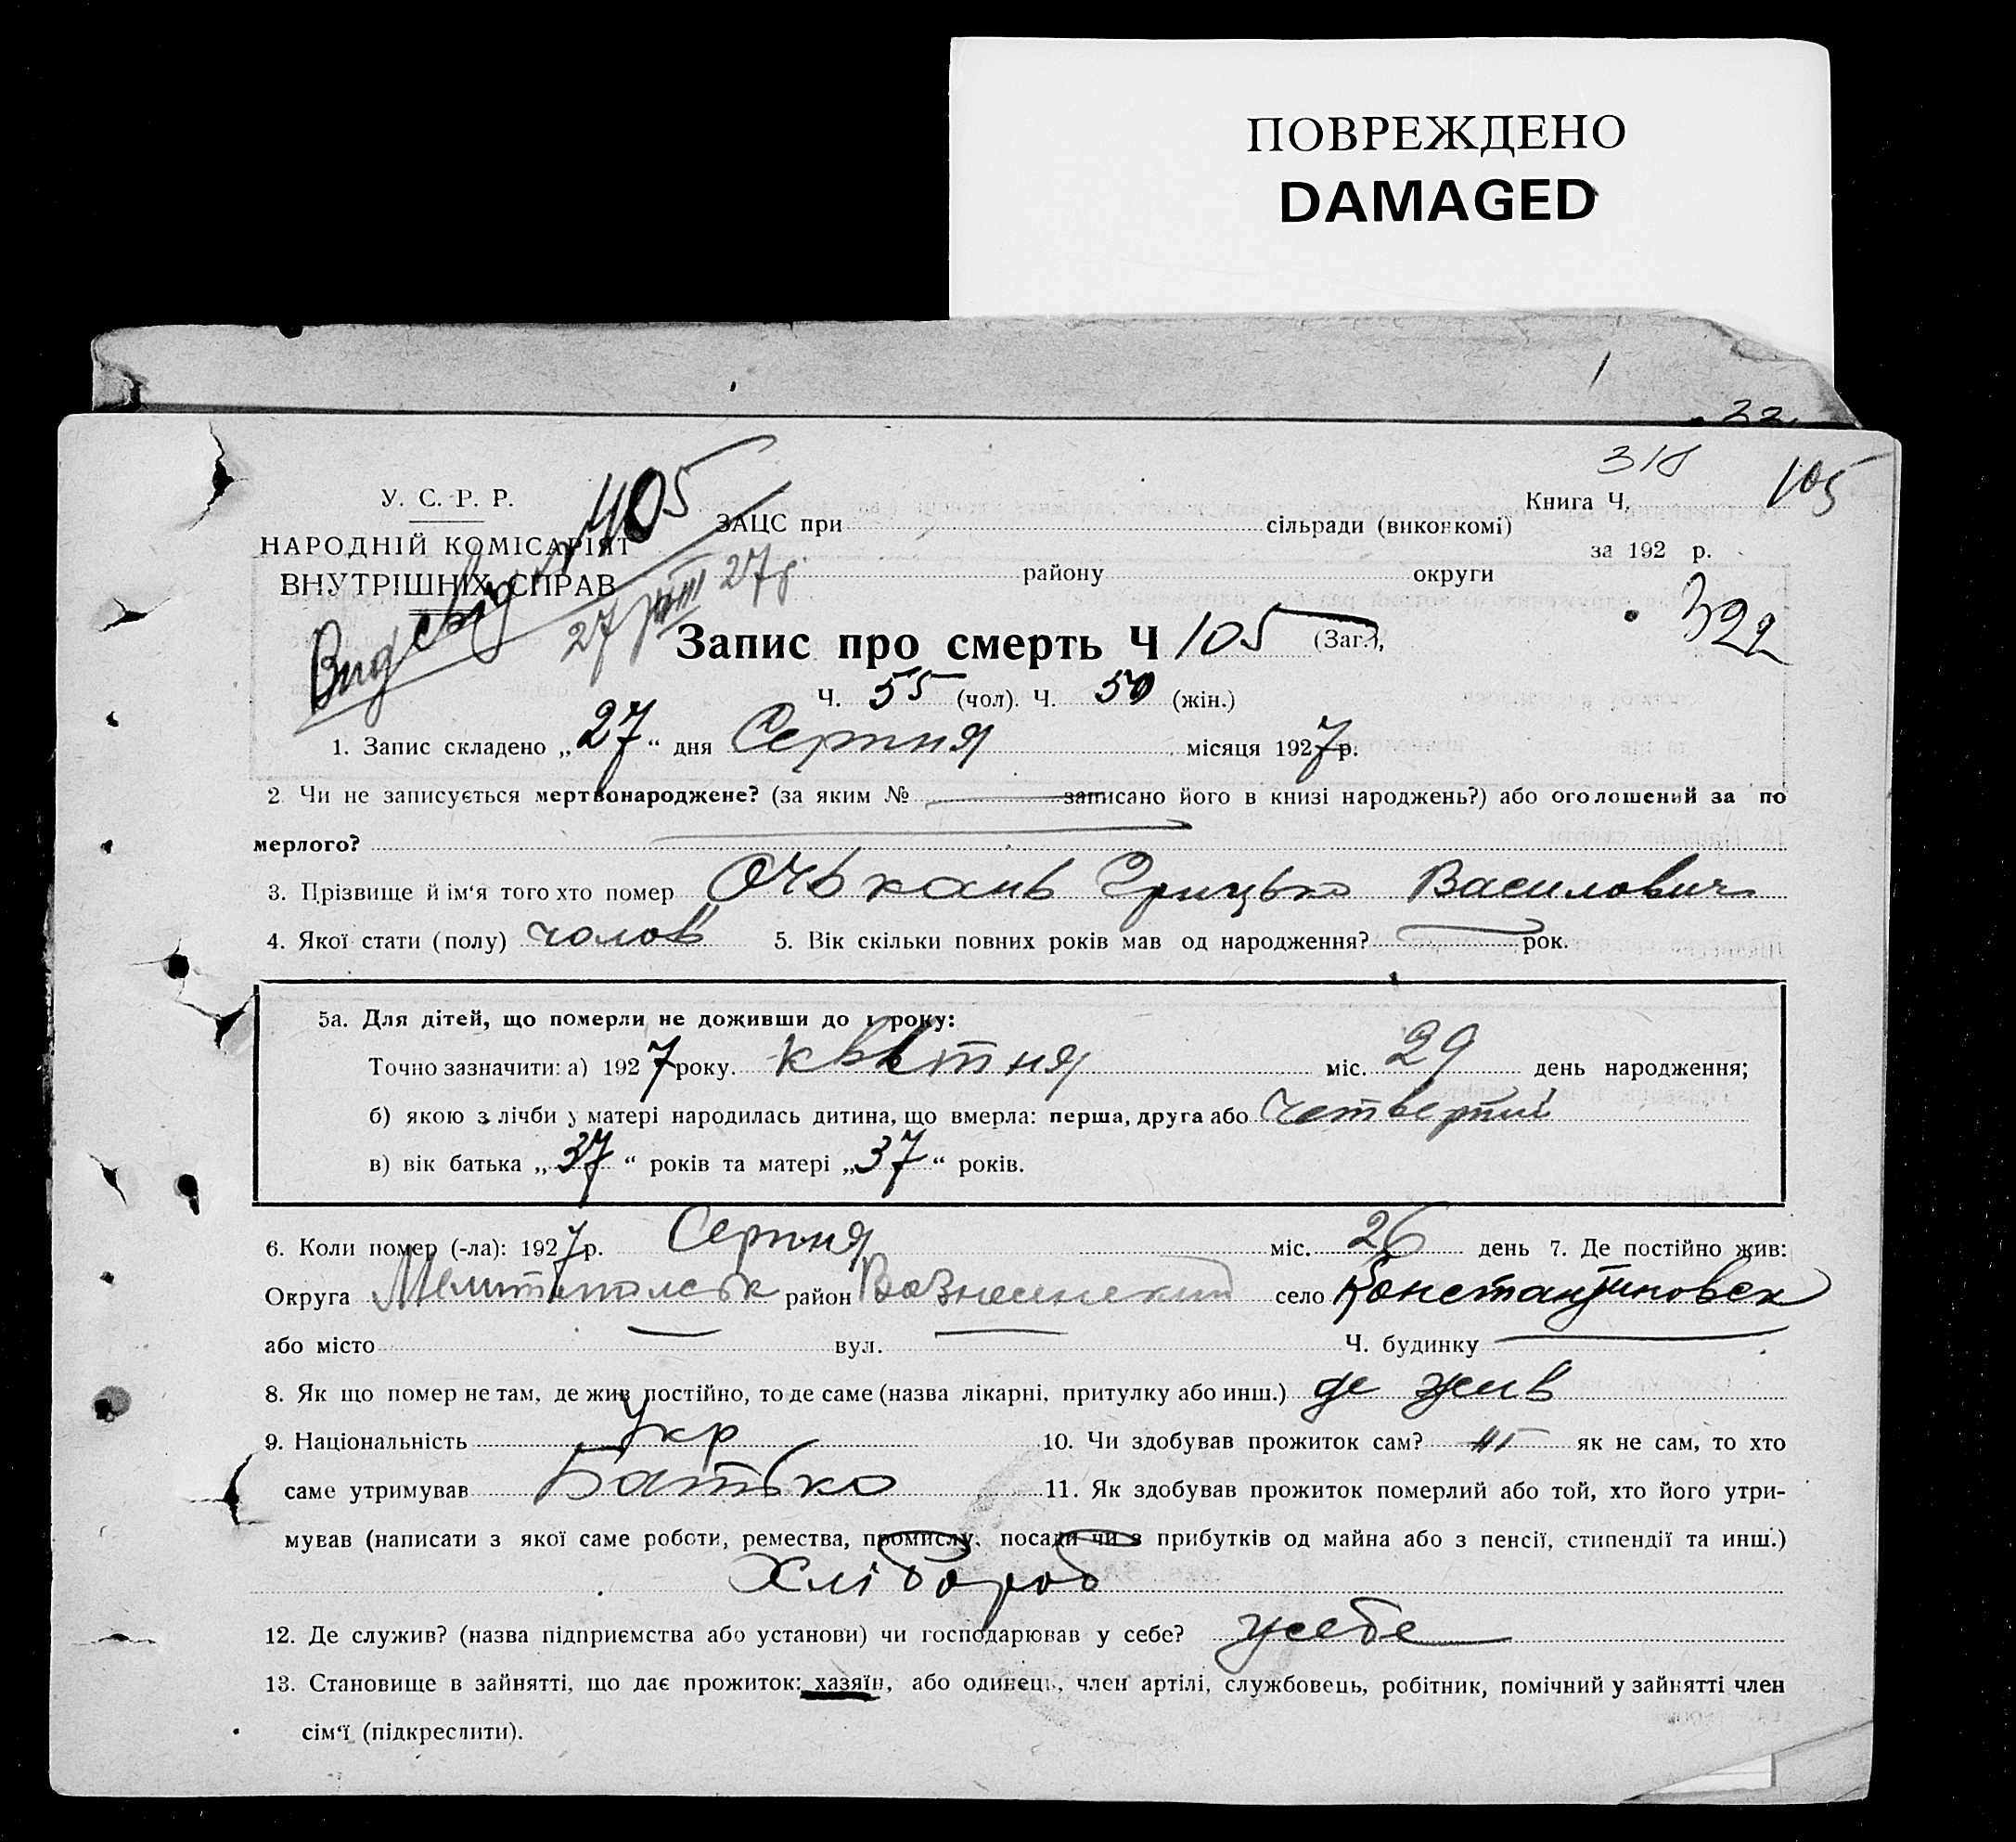 ПОВРЕЖДЕНО
DAMAGED
1
318
105
У. С. Р. Р.
НАРОДНІЙ КОМІСАРІЯТ
ВНУТРІШНІХ СПРАВ
Вид свід 405
27/VIII 27р.
Книга Ч.
ЗАЦС при сільради (виконкомі)
за 192 р.
району округи
322
Запис про смерть Ч 105 (Заг.),
Ч. 55 (чол). Ч. 50 (жін.)
1. Запис складено „27“ дня Серпня місяця 1927 р.
2 Чи не записується мертвонароджене? (за яким № записано його в книзі народжень?) або оголошений за по
мерлого?
3. Прізвище й ім‘я того хто помер Очькань Грицько Василович
4. Якої стати (полу) чолов 5. Вік скільки повних років мав од народження? рок.
5а. Для дітей, що померли не доживши до 1 року:
Точно зазначити: а) 1927 року. квітня міс. 29 день народження;
б) якою з лічби у матері народилась дитина, що вмерла: перша, друга або четвертий
в) вік батька „37“ років та матері „37“ років.
6. Коли помер (-ла): 1927 р. Серпня міс. 26 день 7. Де постійно жив:
Округа Мелитопольськ район Вознесинский село Константиновск
або місто вул. Ч. будинку
8. Як що помер не там, де жив постійно, то де саме (назва лікарні, притулку або инш.) де жив
9. Національність Укр 10. Чи здобував прожиток сам? як не сам, то хто
саме утримував Батько 11. Як здобував прожиток померлий або той, хто його утри-
мував (написати з якої саме роботи, ремества, промислу, посади чи з прибутків од майна або з пенсії, стипендії та инш.)
Хлібороб
12. Де служив? (назва підприємства або установи) чи господарював у себе? усебе
13. Становище в зайнятті, що дає прожиток: хазяїн, або одинець, член артілі, службовець, робітник, помічний у зайнятті член
сім‘ї (підкреслити).